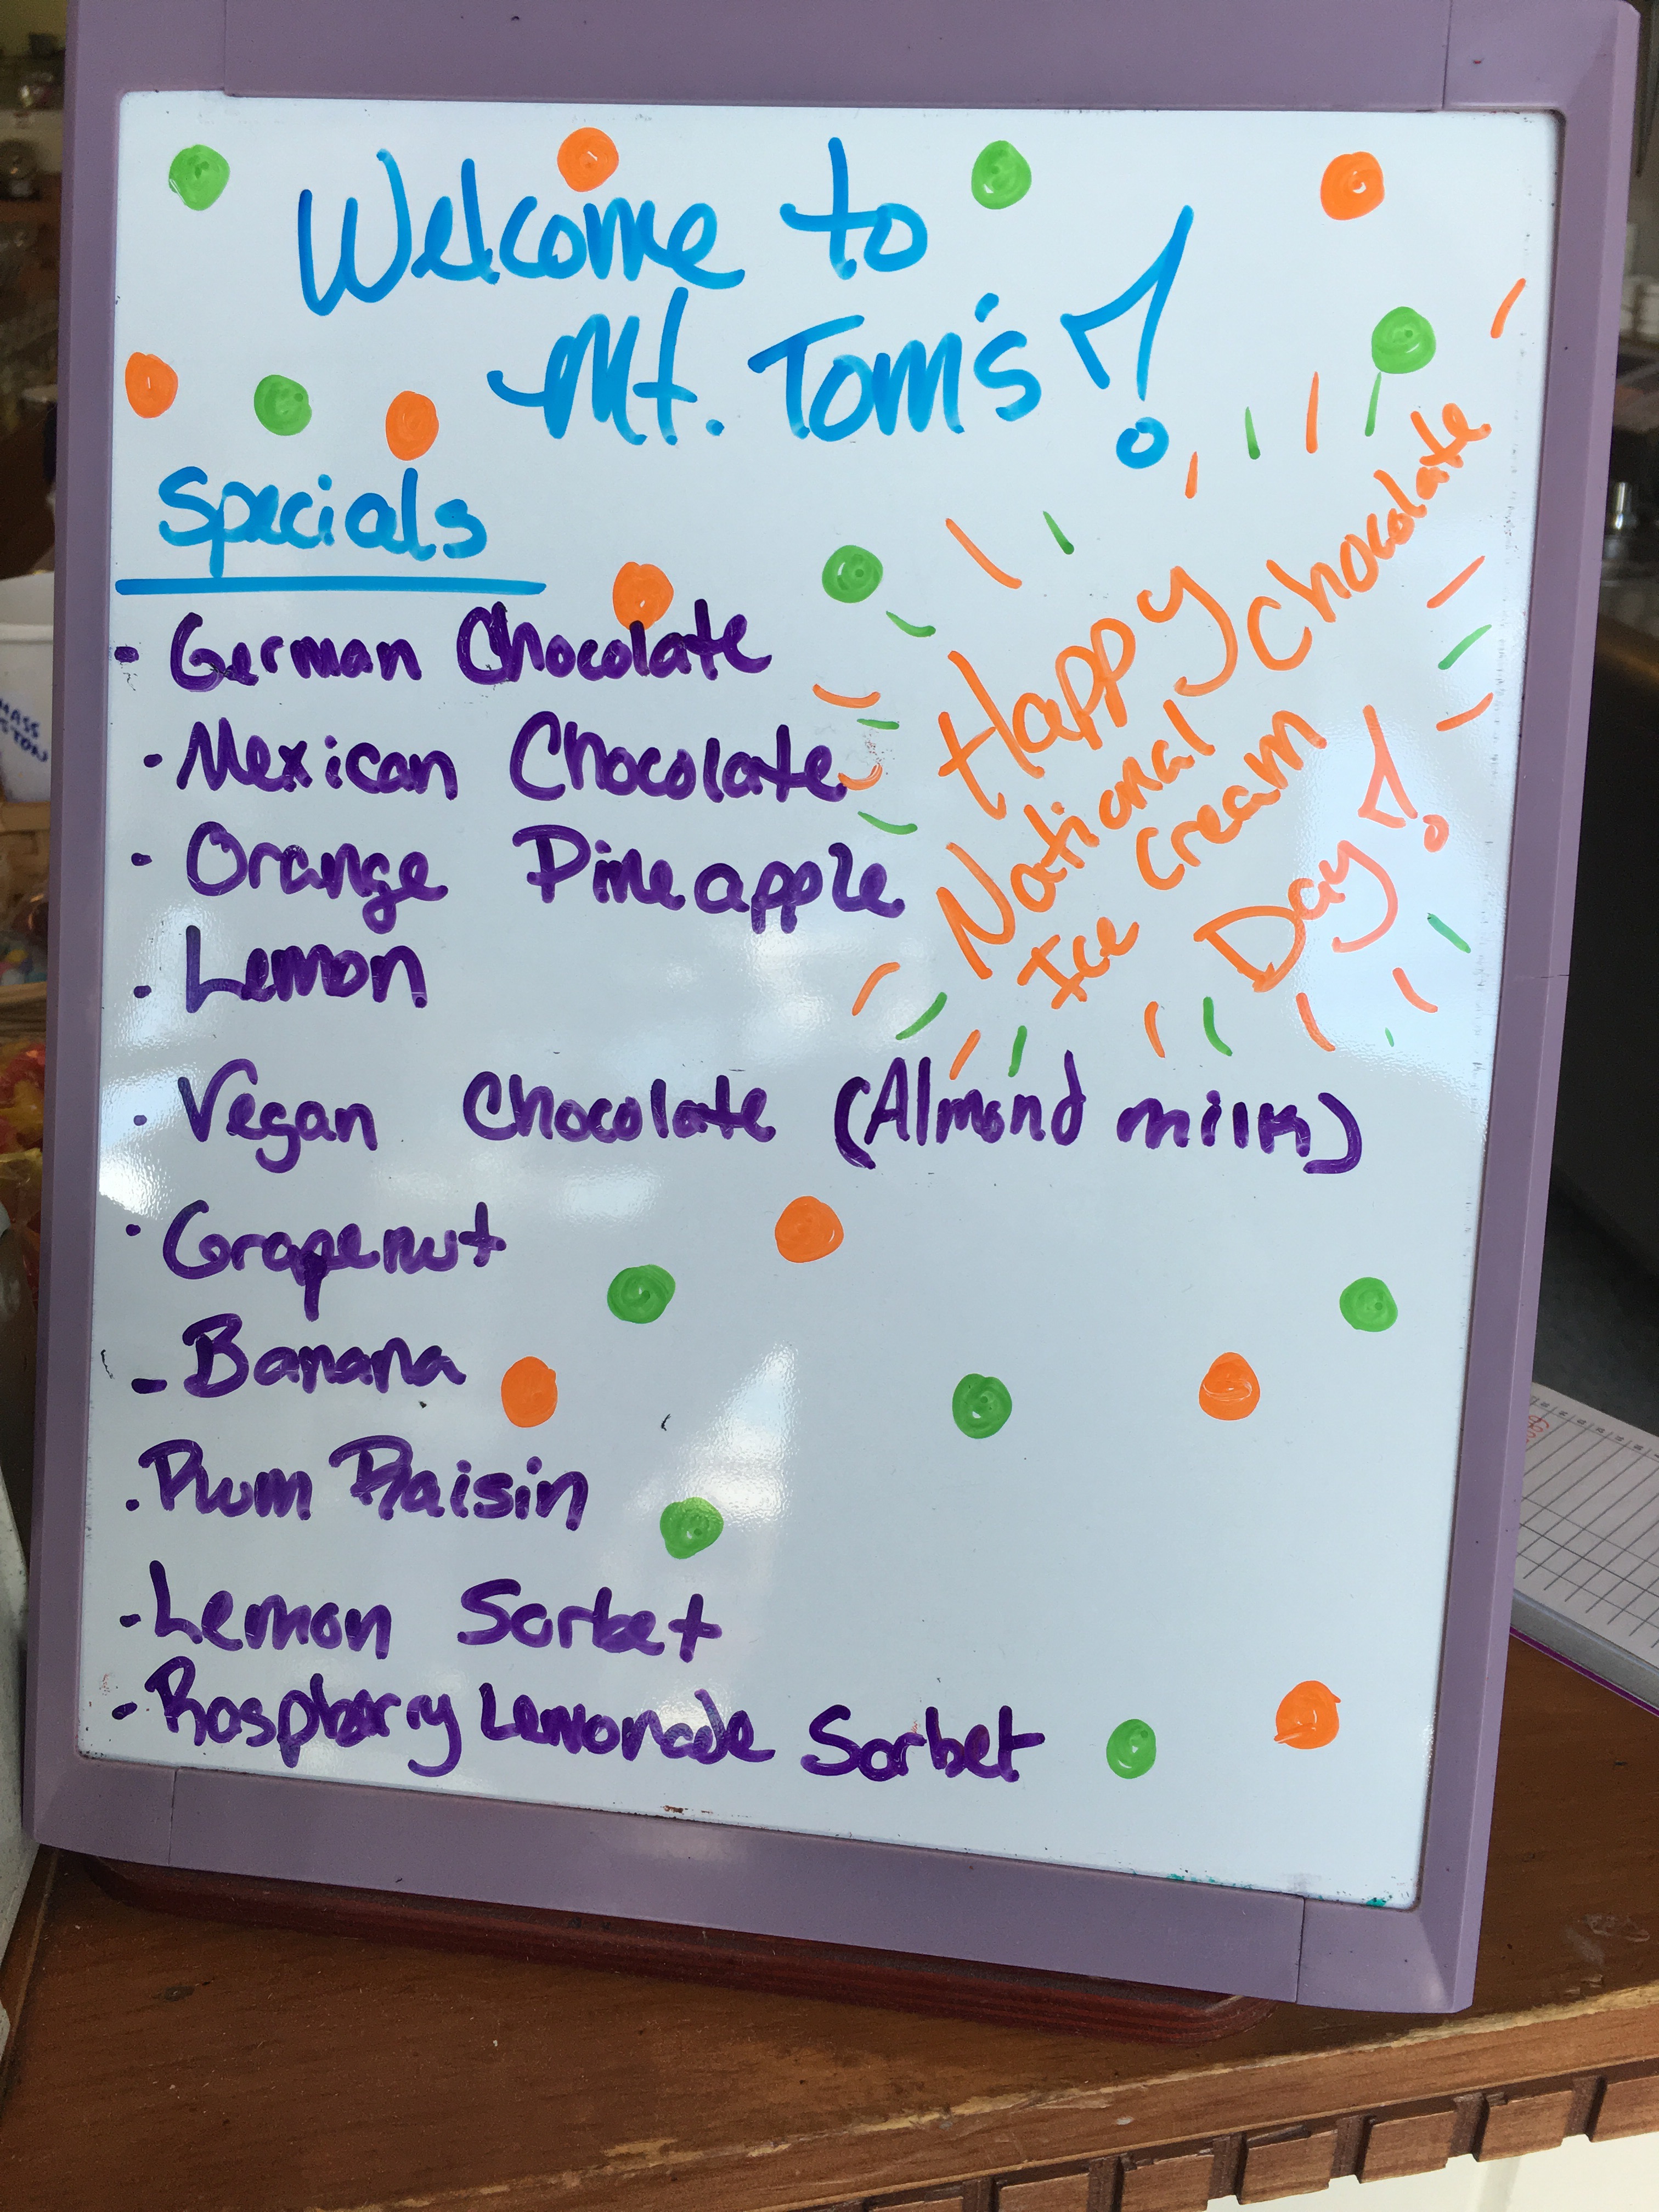 Welcome to
Mt. Tom's!
Specials
- German Chocolate
- Mexican Chocolate
- Orange Pineapple
- Lemon
- Vegan Chocolate (Almond milk)
- Grapenut
- Banana
- Rum Raisin
- Lemon Sorbet
- Raspberry Lemonade Sorbet
Happy
National Chocolate
Ice Cream
Day!
MASS